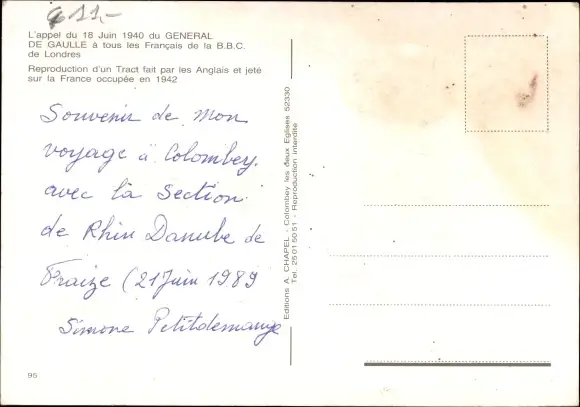 € 11,-
L'appel du 18 Juin 1940 du GENERAL
DE GAULLE à tous les Français de la B.B.C.
de Londres
Reproduction d'un Tract fait par les Anglais et jeté
sur la France occupée en 1942
Souvenir de mon
voyage à Colombey.
avec la Section
de Rhin Danube de
Fraize (21 Juin 1989
Simone Petitdemange
Editions A. CHAPEL - Colombey les deux Eglises 52330
Tel. 25 01 50 51 - Reproduction interdite
95